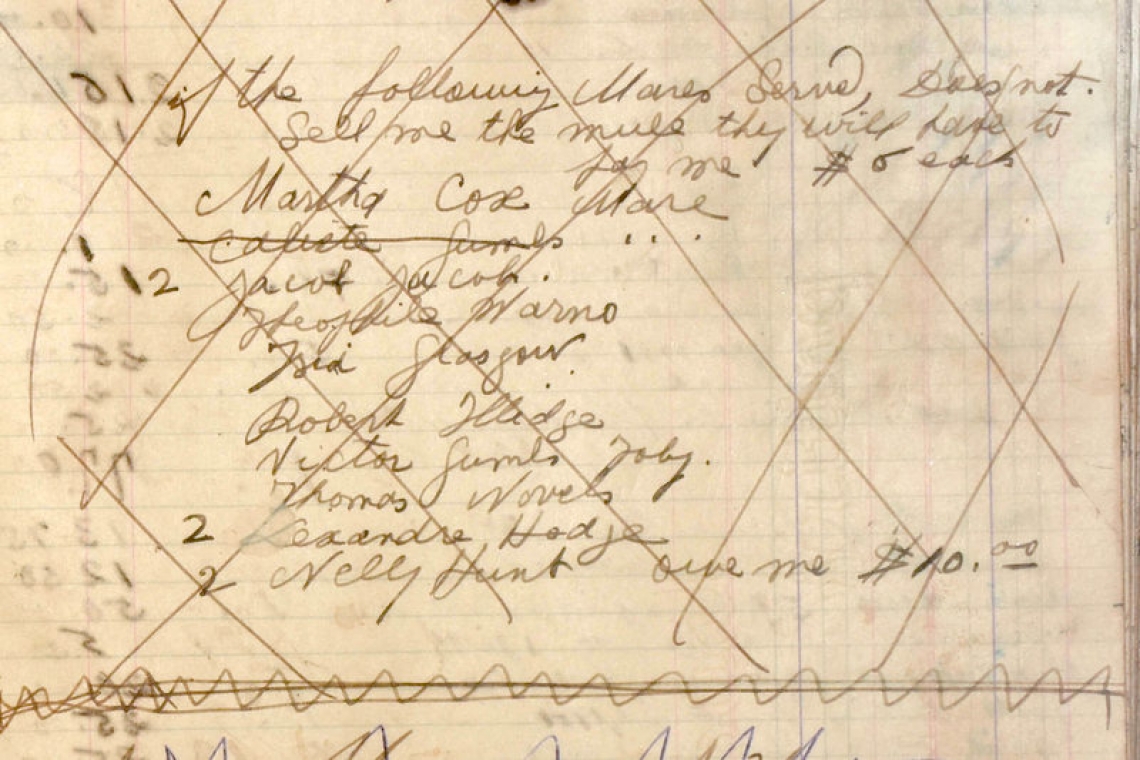 if the following Mares Served, Does not.
Sell me the mule thy will have to
pay me $ 5 each
Martha Cox Mare
Jumls . . .
12 Jacob Jacob.
Theophile Warno
Glasgow
Robert Illidge
Victor Jumls Toby.
Thomas Novels
2 Lexandre Hodge
2 Nelly Hunt owe me $10.00